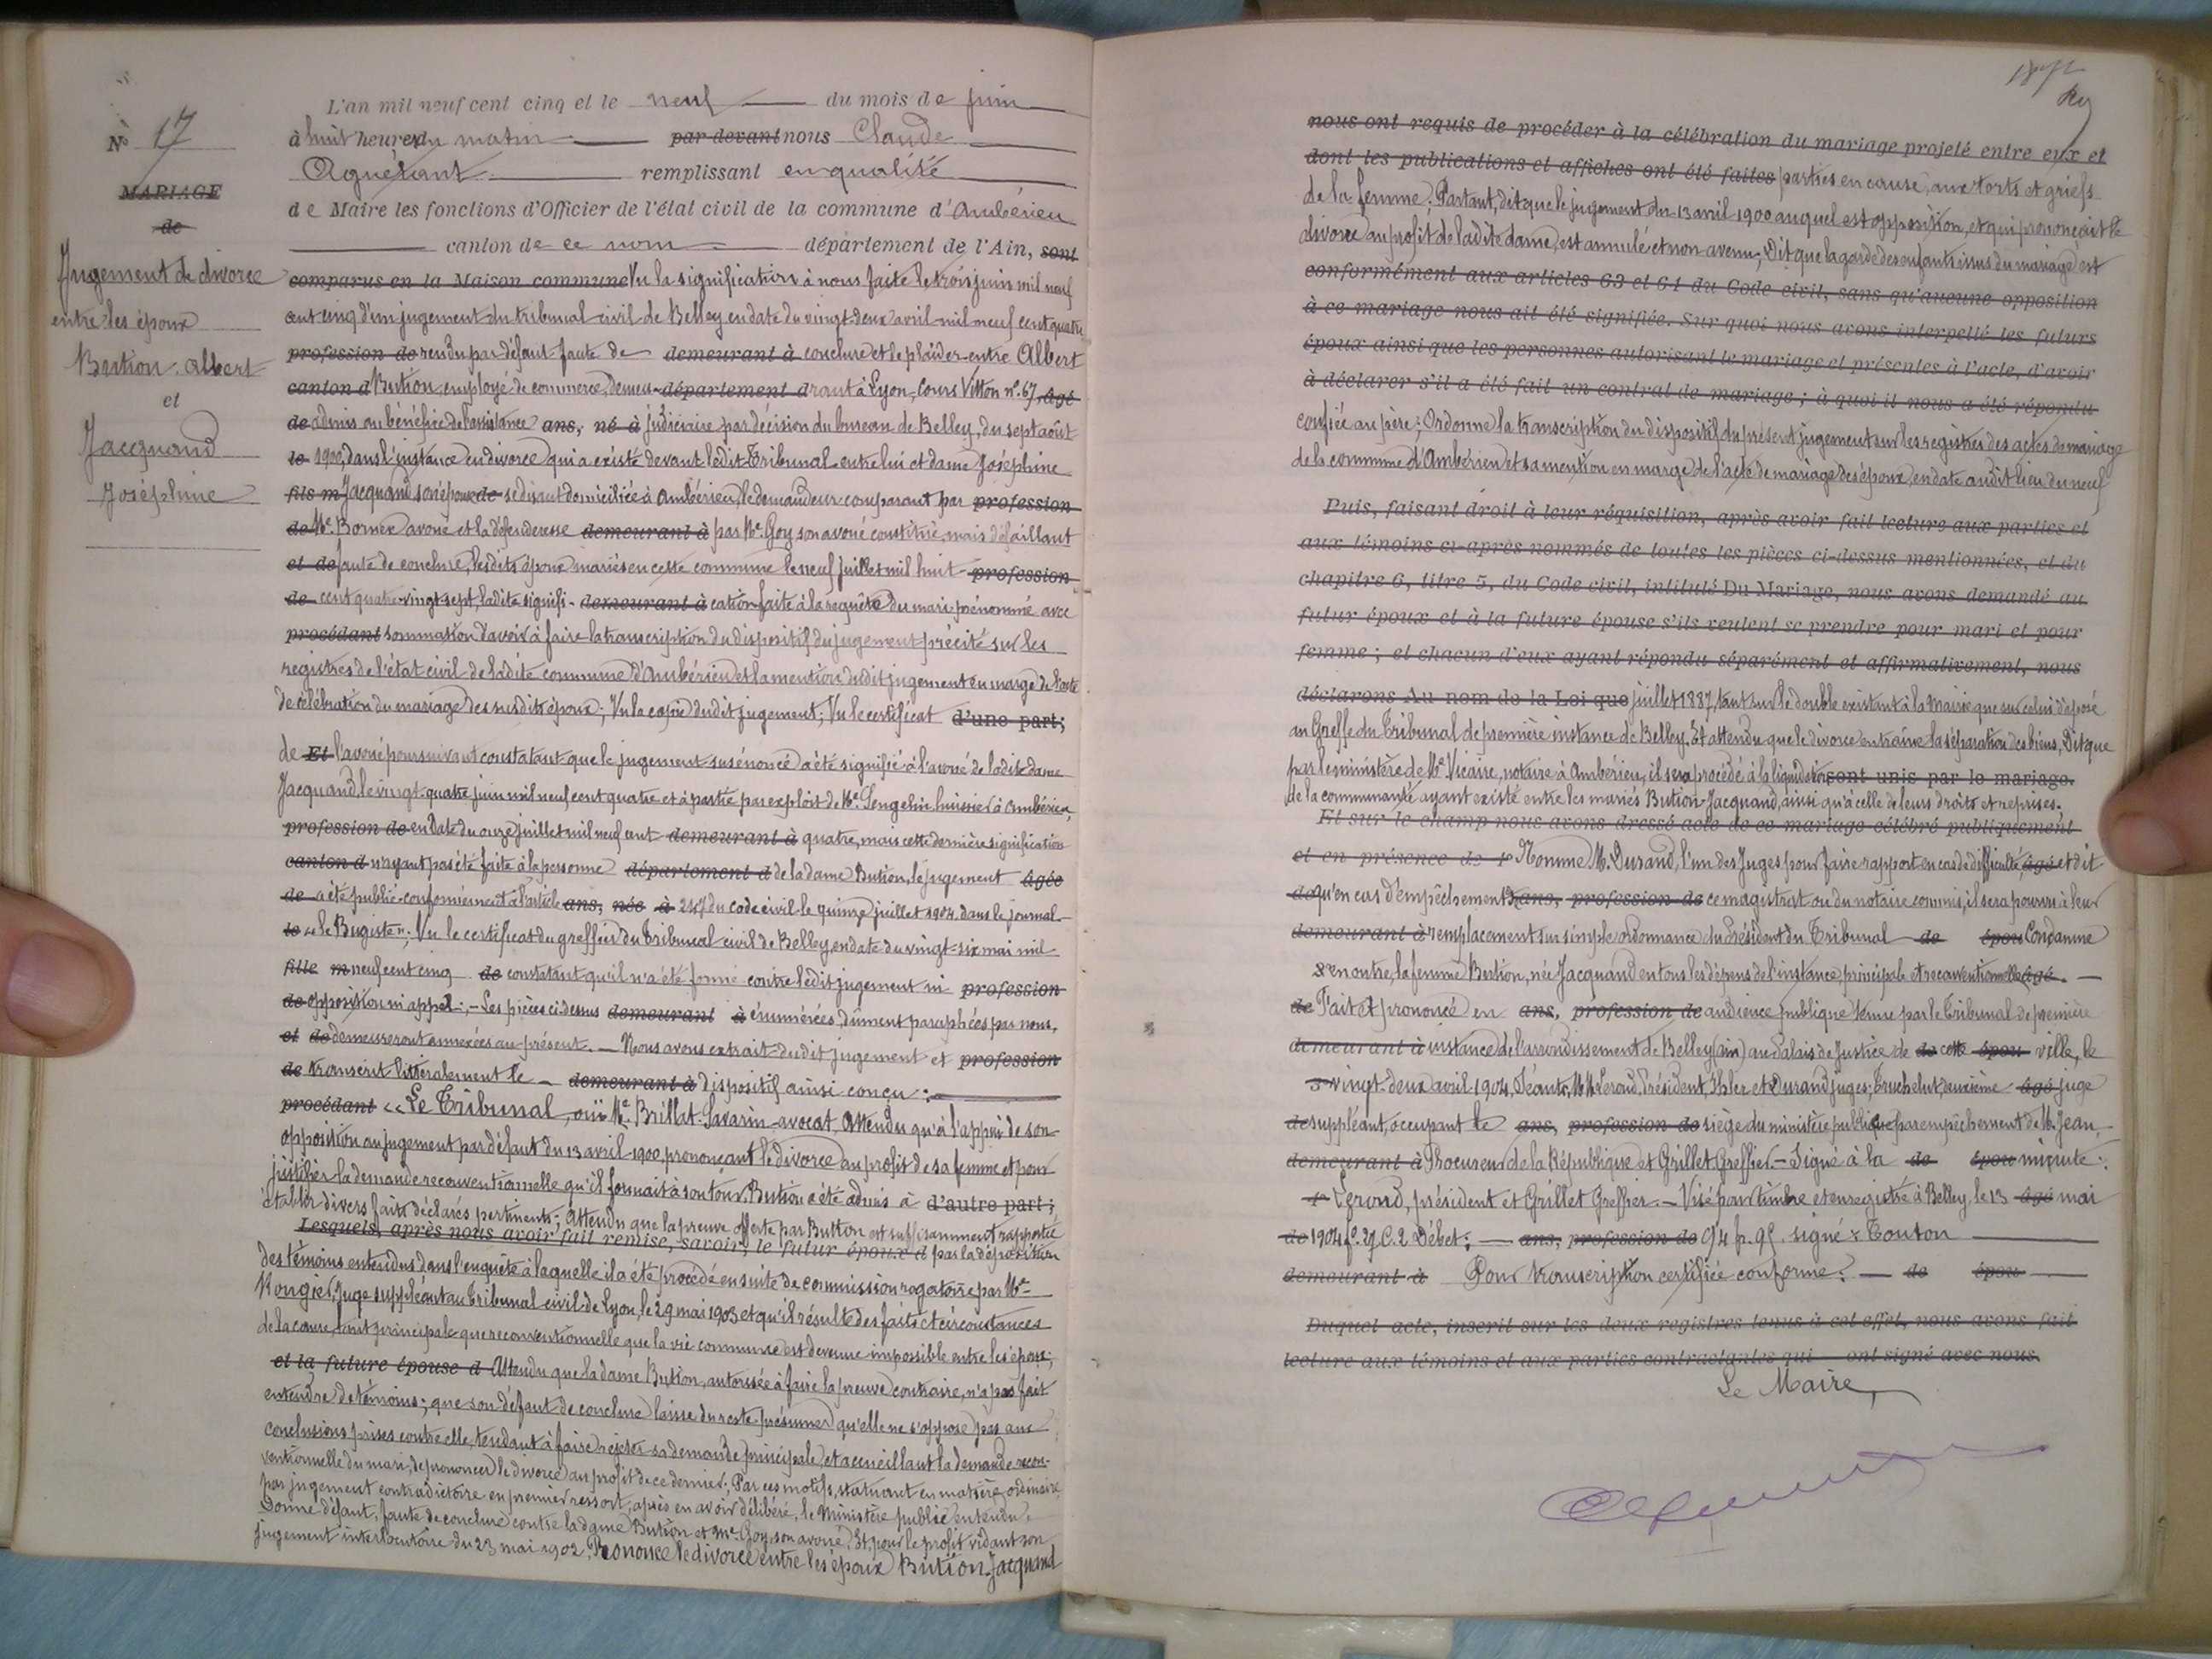 L'an mil neuf cent cinq et le neuf du mois de juin
N° 17
à huit heures du matin par devant nous Claude
Aguétant remplissant en qualité
MARIAGE
de
de Maire les fonctions d'Officier de l'état civil de la commune d'Ambérieu
canton de ce nom département de l'Ain, sont
Jugement de divorce
entre les époux
Bution Albert
et
Jacquand
Joséphine
comparus en la Maison commune Vu la signification à nous faite le trois juin mil neuf
cent cinq d'un jugement du tribunal civil de Belley en date du vingt-deux avril mil neuf cent quatre
profession de rendu par défaut faute de demeurant à conclure et le plaider entre Albert
canton d Bution, employé de commerce, demeu- département d rant à Lyon, Cours Vitton n° 67, âgé
de admis au bénéfice de l'assistance ans, né à judiciaire par décision du bureau de Belley, du sept août
le 1900, dans l'instance en divorce qui a existé devant ledit Tribunal entre lui et dame Joséphine
fils m Jacquand, son épouse de se disant domiciliée à Ambérieu, le demandeur comparant par profession
de Me Borner avoué et la défenderesse demeurant à par Me Goy son avoué constitué, mais défaillant
et de faute de conclure, lesdits époux mariés en cette commune le neuf juillet mil huit- profession
de cent quatre-vingt-sept, ladite signifi- demeurant à cation faite à la requête du mari prénommé avec
procédant sommation d'avoir à faire la transcription du dispositif du jugement précité sur les
registres de l'état civil de ladite commune d'Ambérieu et la mention dudit jugement en marge de l'acte
de célébration du mariage des susdits époux; Vu la copie dudit jugement; Vu le certificat d'une part;
de Et l'avoué poursuivant constatant que le jugement susénoncé a été signifié à l'avoué de ladite dame
Jacquand, le vingt-quatre juin mil neuf cent quatre et à partie par exploit de Me Gengelin huissier à Ambérieu,
profession de en date du onze juillet mil neuf cent demeurant à quatre, mais cette dernière signification
canton d n'ayant pas été faite à la personne département d de la dame Bution, le jugement âgée
de a été publié conformément à l'article ans, née à 247 du code civil le quinze juillet 1904 dans le journal
le "le Bugiste"; Vu le certificat du greffier du Tribunal civil de Belley en date du vingt-six mai mil
fille m neuf cent cinq de constatant qu'il n'a été formé contre ledit jugement ni profession
de opposition ni appel; - Les pièces ci-dessus demeurant à énumérées, dûment paraphées par nous,
et de demeureront annexées au présent. - Nous avons extrait dudit jugement et profession
de transcrit littéralement le demeurant à dispositif ainsi conçu:
procédant "Le Tribunal, ouï Me Brillat-Savarin avocat, Attendu qu'à l'appui de son
opposition au jugement par défaut du 13 avril 1900, prononçant le divorce au profit de sa femme et pour
justifier la demande reconventionnelle qu'il formait à son tour, Bution a été admis à d'autre part;
établir divers faits déclarés pertinents; Attendu que la preuve offerte par Bution est suffisamment rapportée
Lesquels, après nous avoir fait remise, savoir; le futur époux d par la déposition
des témoins entendus dans l'enquête à laquelle il a été procédé en suite de commission rogatoire par Mr
Rougier, Juge suppléant au Tribunal civil de Lyon, le 29 mai 1903 et qu'il résulte des faits et circonstances
de la cause, tant principale que reconventionnelle que la vie commune est devenue impossible entre les époux;
et la future épouse d Attendu que la dame Bution, autorisée à faire la preuve contraire, n'a pas fait
entendre de témoins; que son défaut de conclure laisse du reste présumer qu'elle ne s'oppose pas aux
conclusions prises contre elle, tendant à faire rejeter sa demande principale, et accueillant la demande recon-
ventionnelle du mari, de prononcer le divorce au profit de ce dernier; Par ces motifs, statuant en matière ordinaire,
par jugement contradictoire en premier ressort, après en avoir délibéré, le Ministère public entendu,
Donne défaut, faute de conclure contre la dame Bution et Me Goy, son avoué, Et pour le profit vidant son
jugement interlocutoire du 23 mai 1902, Prononce le divorce entre les époux Bution-Jacquand
nous ont requis de procéder à la célébration du mariage projeté entre eux et
dont les publications et affiches ont été faites parties en cause, aux torts et griefs
de la femme; Partant, dit que le jugement du 13 avril 1900 auquel est opposition, et qui prononçait le
divorce au profit de ladite dame, est annulé et non avenu; Dit que la garde des enfants issus du mariage est
conformément aux articles 63 et 64 du Code civil, sans qu'aucune opposition
à ce mariage nous ait été signifiée. Sur quoi nous avons interpellé les futurs
époux ainsi que les personnes autorisant le mariage et présentes à l'acte, d'avoir
à déclarer s'il a été fait un contrat de mariage; à quoi il nous a été répondu
confiée au père; Ordonne la transcription du dispositif du présent jugement sur les registres des actes de mariage
de la commune d'Ambérieu et sa mention en marge de l'acte de mariage des époux, en date audit lieu du neuf
Puis, faisant droit à leur réquisition, après avoir fait lecture aux parties et
aux témoins ci-après nommés de toutes les pièces ci-dessus mentionnées, et du
chapitre 6, titre 5, du Code civil, intitulé Du Mariage, nous avons demandé au
futur époux et à la future épouse s'ils veulent se prendre pour mari et pour
femme; et chacun d'eux ayant répondu séparément et affirmativement, nous
déclarons Au nom de la Loi que juillet 1887, tant sur le double existant à la Mairie que sur celui déposé
au Greffe du Tribunal de première instance de Belley. Et attendu que le divorce entraîne la séparation des biens, Dit que
par le ministère de Me Vicaire, notaire à Ambérieu, il sera procédé à la liquidation sont unis par le mariage.
de la communauté ayant existé entre les mariés Bution-Jacquand, ainsi qu'à celle de leurs droits et reprises.
Et sur le champ nous avons dressé acte de ce mariage célébré publiquement
et en présence de 1° Nomme M. Durand, l'un des Juges pour faire rapport en cas de difficulté, âgé et dit
de qu'en cas d'empêchement de ans, profession de ce magistrat ou du notaire commis, il sera pourvu à leur
demeurant à remplacement sur simple ordonnance du Président du Tribunal de épou Condamne
2° en outre, la femme Bution, née Jacquand en tous les dépens de l'instance, principale et reconventionnelle âgé.
de Fait et prononcé en ans, profession de audience publique tenue par le Tribunal de première
demeurant à instance de l'arrondissement de Belley (Ain) au Palais de Justice de de cette épou ville, le
3° vingt-deux avril 1904, Séants, M.M. Perond, Président, Ihler et Durand juges; Truchelut, deuxième âgé juge
de suppléant, occupant le ans, profession de siège du ministère public par empêchement de M. Jean,
demeurant à Procureur de la République et Grillet Greffier. - Signé à la de épou minute:
4° Perond, président et Grillet Greffier. - Visé pour timbre et enregistré à Belley, le 13 âgé mai
de 1904 fo. 27 C. 2 Débet: ans, profession de 94 fr. 95 signé: Touton
demeurant à Pour transcription certifiée conforme: de épou
Duquel acte, inscrit sur les deux registres tenus à cet effet, nous avons fait
lecture aux témoins et aux parties contractantes qui ont signé avec nous.
Le Maire,